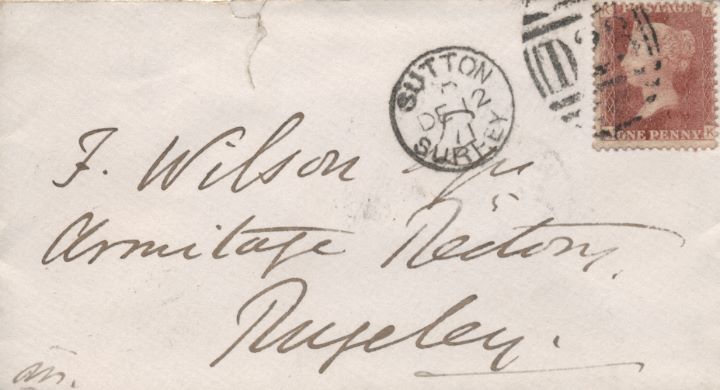 POSTAGE
ONE PENNY
SUTTON
C
DE 12
71
SURREY
F. Wilson Esqre
Armitage Rectory,
Rugeley.